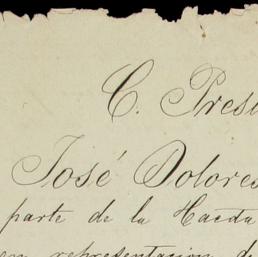 C. Presi
José Dolores
parte de la Hacda
en representacion de